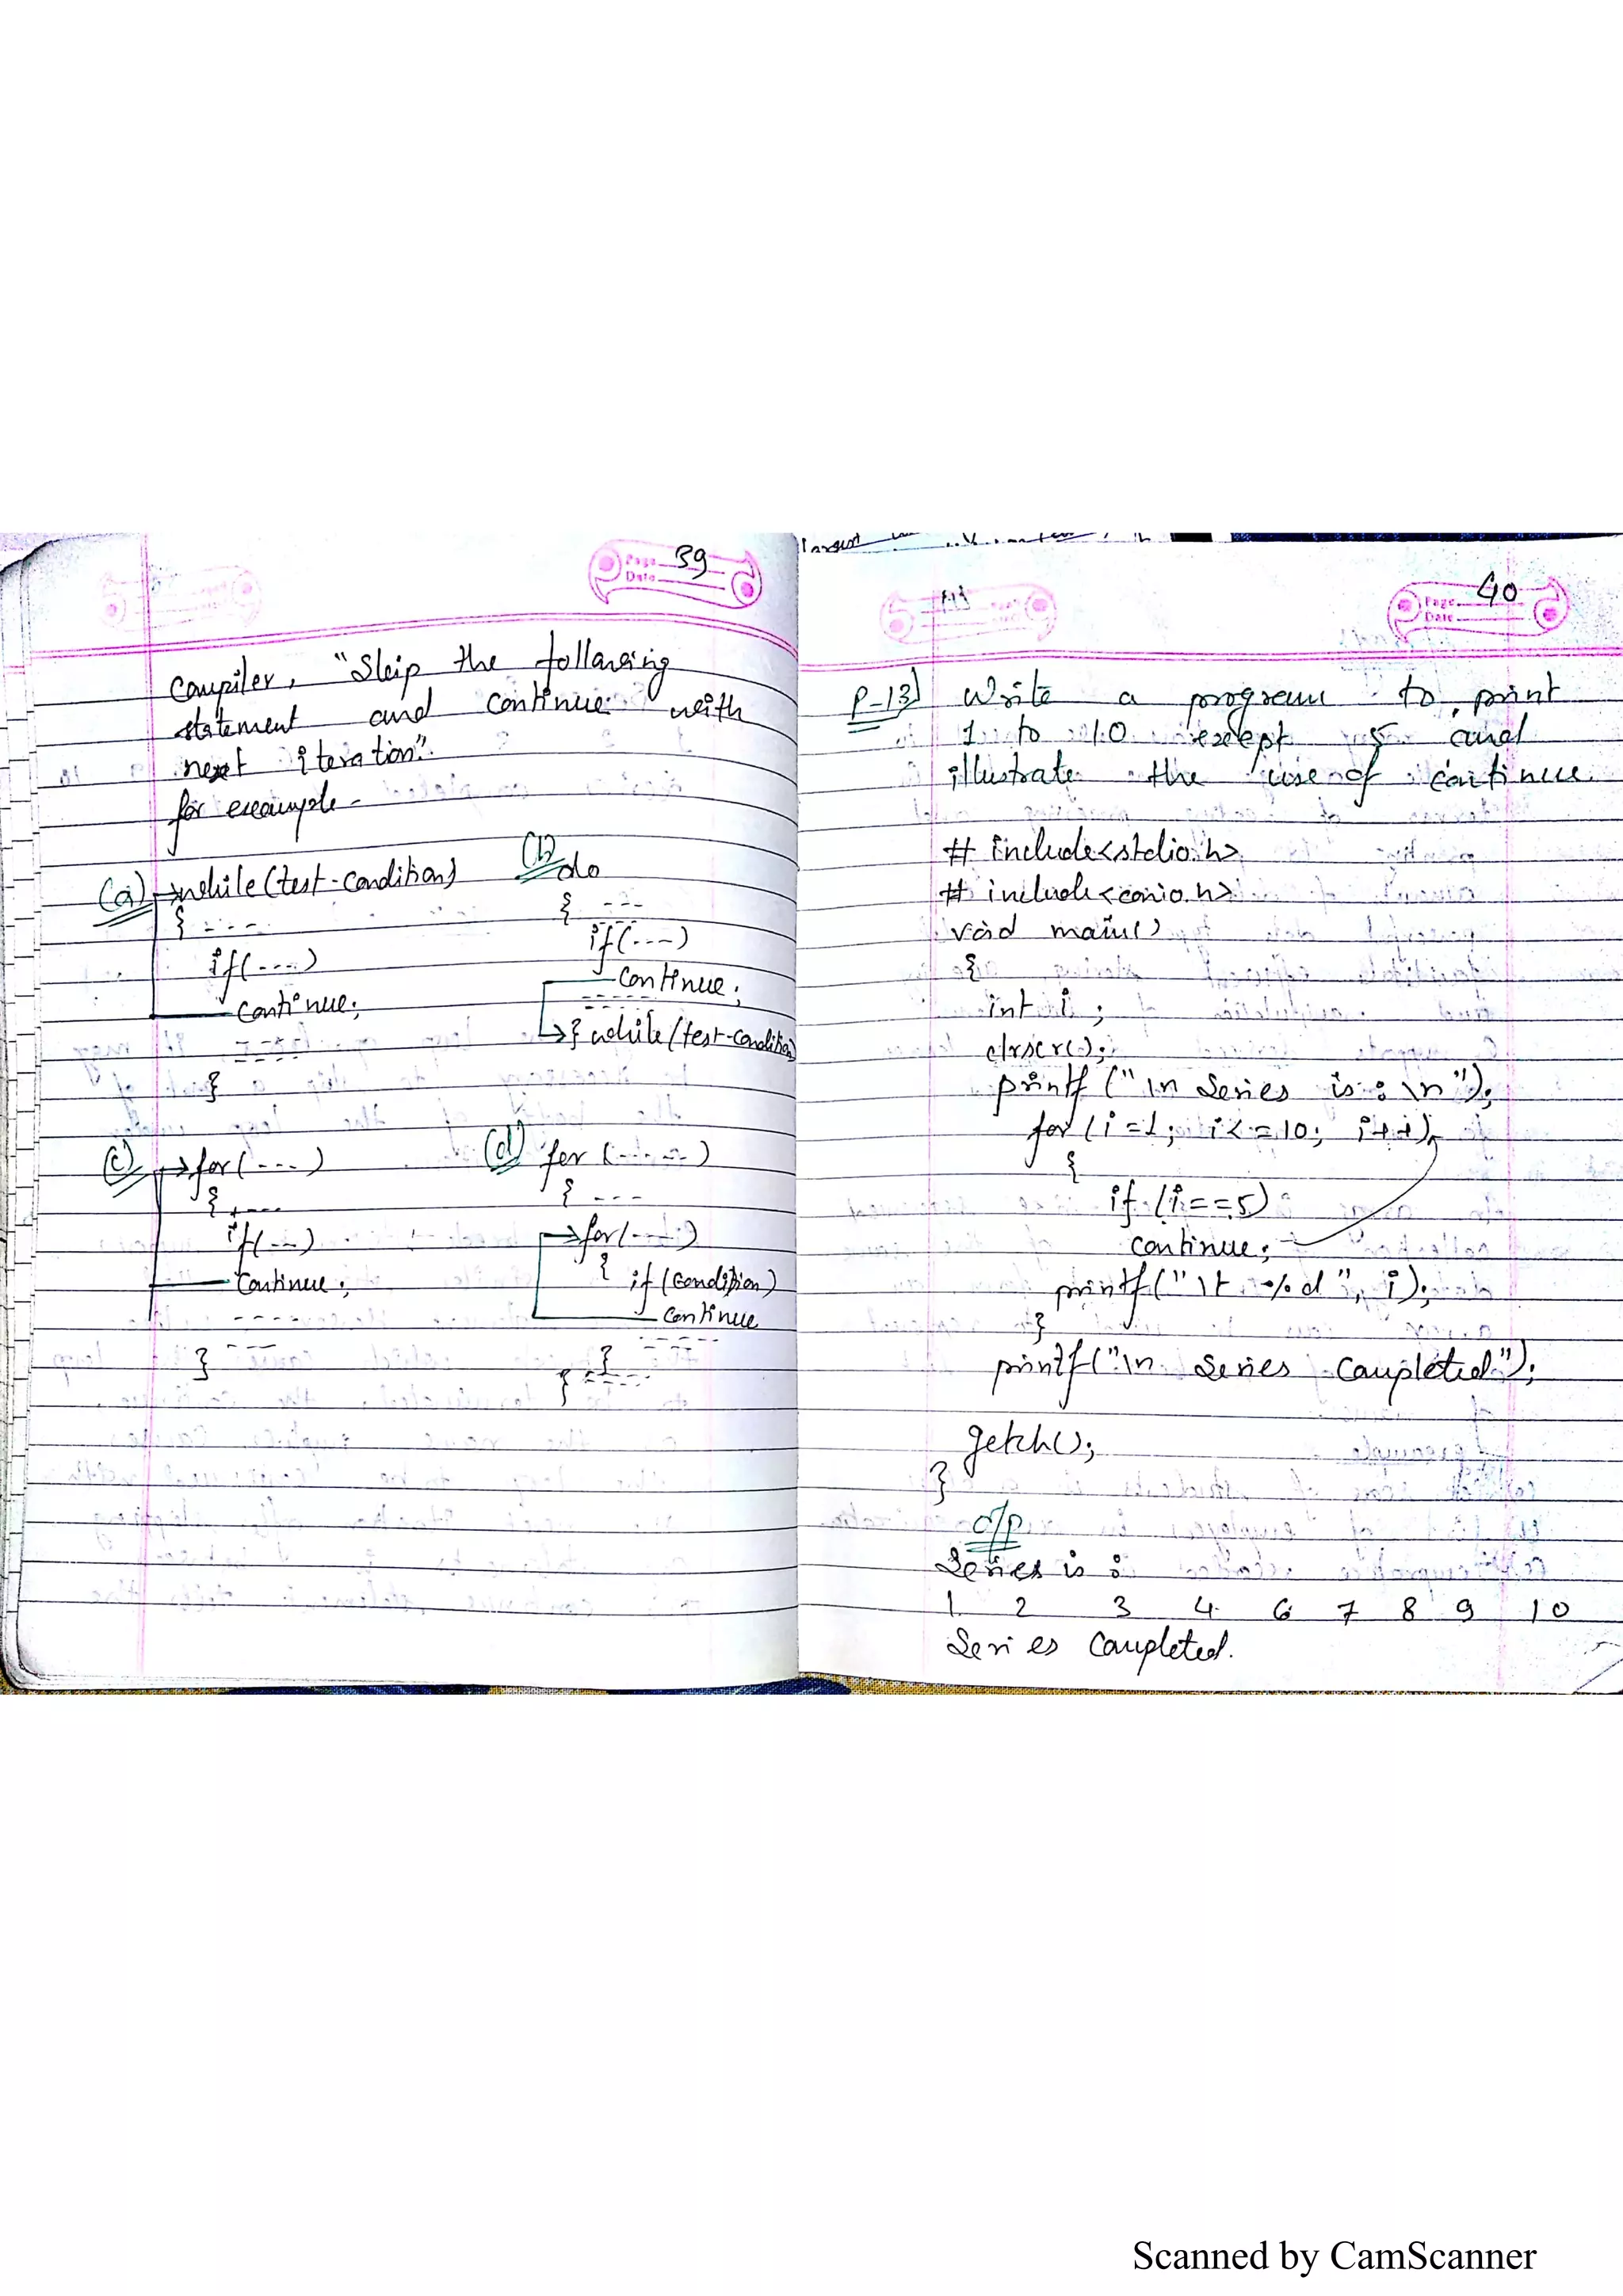 Page 39
Date
Compiler, "Skip the following
statement and continue with
next iteration".
for example-
(a) while (test-condition)
{ ----
if(----)
continue;
-----
}
(b) do
{ ---
if(----)
continue;
-----
} while (test-condition)
(c) for(---)
{ ----
if(---)
continue;
----
}
(d) for (-----)
{ ---
for(----)
{ if (condition)
continue
----
}
} -----
largest
Page 40
Date
P-13] Write a program to print
1 to 10 except 5 and
illustrate the use of continue.
# include<stdio.h>
# include<conio.h>
void main()
{
int i;
clrscr();
printf ("\n Series is : \n");
for (i=1; i<=10; i++)
{
if (i==5)
continue;
printf("\t %d", i);
}
printf("\n Series Completed");
getch();
}
o/p
Series is :
1 2 3 4 6 7 8 9 10
Series Completed.
Scanned by CamScanner